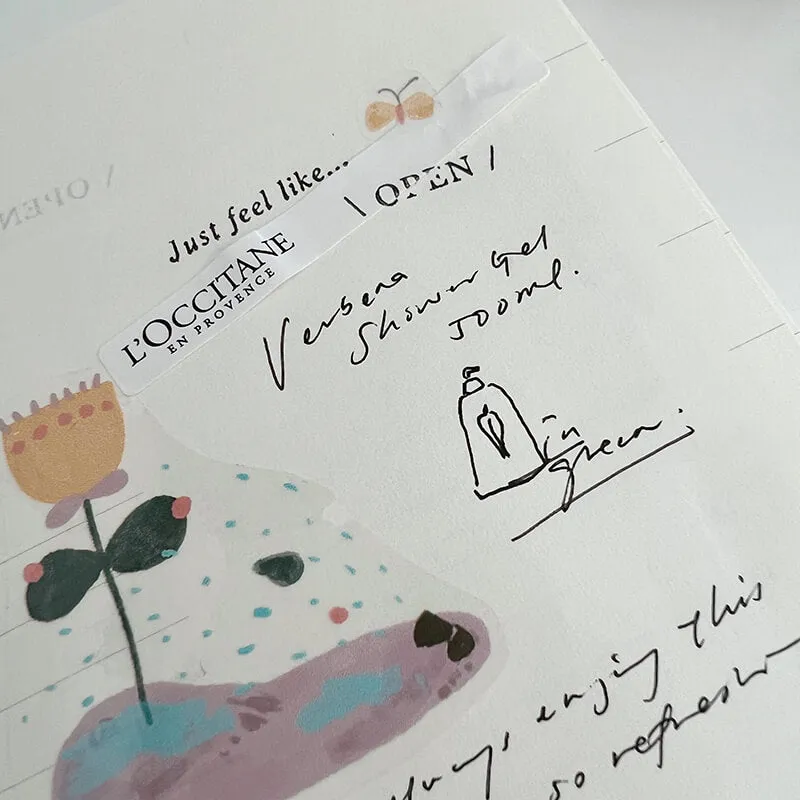 Just feel like...
\ OPEN /
L'OCCITANE
EN PROVENCE
Verbena
Shower Gel
500ml.
in
green.
always enjoy this
so